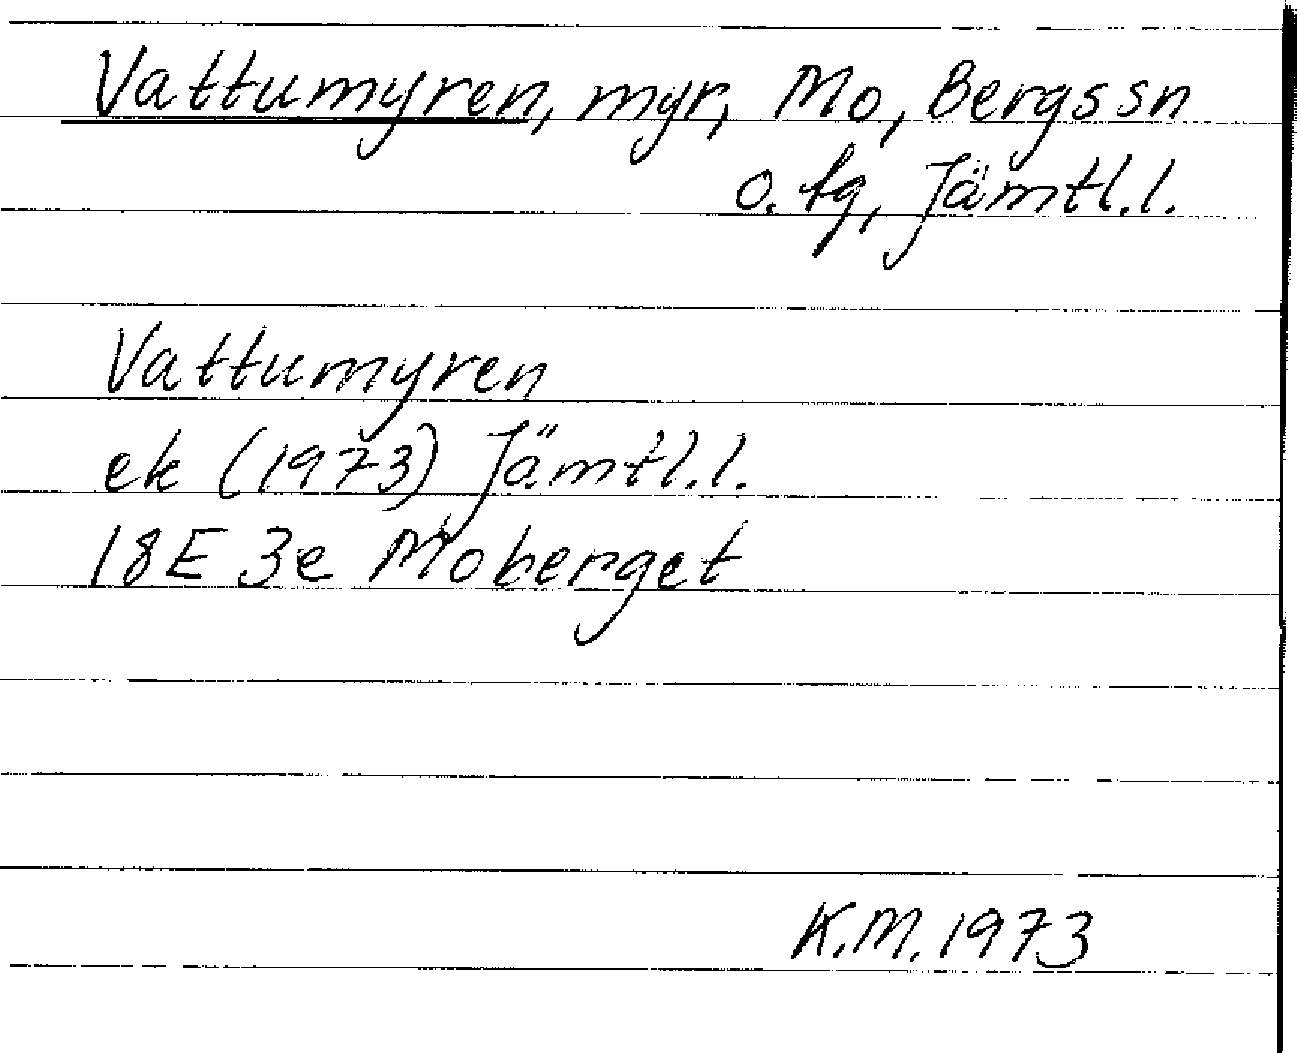 Vattumyren, myr, Mo, Bergssn
o. fg, Jämtl.l.
Vattumyren
ek (1973) Jämtl.l.
18E 3e Moberget
K.M. 1973